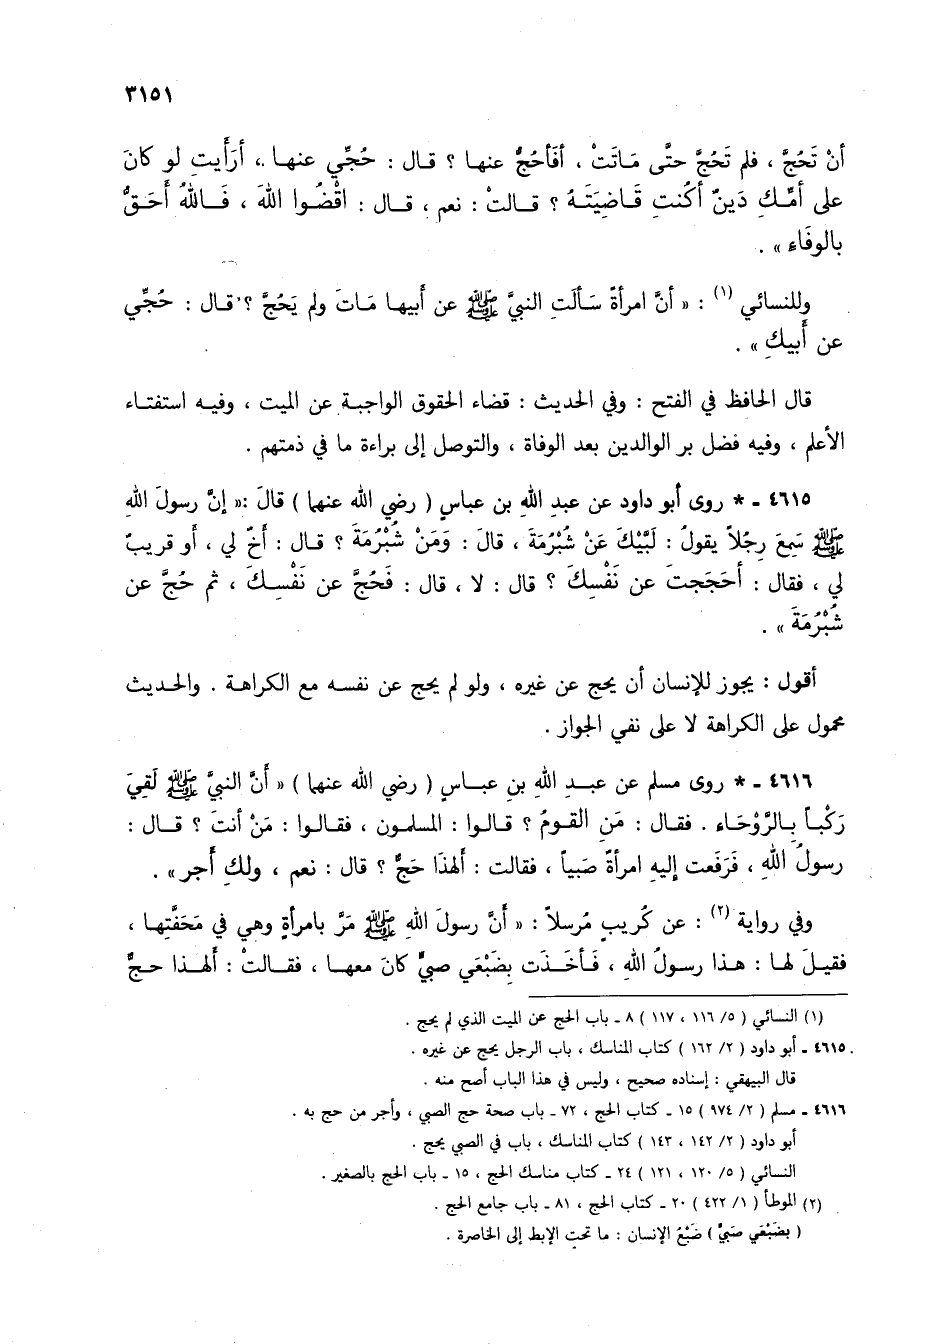 ٣١٥١
أنْ تَحُجَّ ، فلم تَحُجَّ حتَّى مَاتَتْ ، أفَأحُجُّ عنها ؟ قال : حُجِّي عنها ، أرَأَيتِ لو كانَ
على أمِّكِ دَينٌ أكُنتِ قَاضِيَتَهُ ؟ قالتْ : نعم ، قال : اقْضُوا اللهَ ، فَاللهُ أحَقُّ
بالوفَاءِ » .
وللنسائي (١) : « أنَّ امرأةً سَألَتِ النبيَّ ﷺ عن أَبيها مَاتَ ولم يَحُجَّ ؟ قال : حُجِّي
عن أَبيكِ » .
قال الحافظ في الفتح : وفي الحديث : قضاء الحقوق الواجبة عن الميت ، وفيه استفتاء
الأعلم ، وفيه فضل بر الوالدين بعد الوفاة ، والتوصل إلى براءة ما في ذمتهم .
٤٦١٥ - * روى أبو داود عن عبدِ اللهِ بن عباسٍ ( رضي الله عنهما ) قالَ : « إنَّ رسولَ اللهِ
ﷺ سَمِعَ رجُلاً يقولُ : لَبَّيْكَ عَنْ شُبْرُمَةَ ، قالَ : وَمَنْ شُبْرُمَةَ ؟ قال : أخٌ لي ، أو قريبٌ
لي ، فقال : أحَجَجتَ عن نَفْسِكَ ؟ قال : لا ، قال : فَحُجَّ عن نَفْسِكَ ، ثم حُجَّ عن
شُبْرُمَةَ » .
أقول : يجوز للإنسان أن يحج عن غيره ، ولو لم يحج عن نفسه مع الكراهة . والحديث
محمول على الكراهة لا على نفي الجواز .
٤٦١٦ - * روى مسلم عن عبدِ اللهِ بنِ عباسٍ ( رضي الله عنهما ) « أنَّ النبيَّ ﷺ لَقِيَ
رَكْباً بِالرَّوْحَاء . فقال : مَنِ القومُ ؟ قالوا : المسلمون ، فقالوا : مَنْ أنتَ ؟ قال :
رسولُ اللهِ ، فَرَفَعت إليهِ امرأةٌ صَبياً ، فقالت : ألهذَا حَجٌّ ؟ قال : نعم ، ولكِ أجر » .
وفي رواية (٢) : عن كُريبٍ مُرسلاً : « أنَّ رسولَ اللهِ ﷺ مَرَّ بامرأةٍ وهي في مَحَفَّتِها ،
فقيلَ لها : هذا رسولُ اللهِ ، فَأخَذَت بِضَبْعَي صبيٍّ كانَ معها ، فقالتْ : ألهذا حجٌّ
(١) النسائي ( ٥/ ١١٦ ، ١١٧ ) ٨ - باب الحج عن الميت الذي لم يحج .
٤٦١٥ - أبو داود ( ٢/ ١٦٢ ) كتاب المناسك ، باب الرجل يحج عن غيره .
قال البيهقي : إسناده صحيح ، وليس في هذا الباب أصح منه .
٤٦١٦ - مسلم ( ٢/ ٩٧٤ ) ١٥ - كتاب الحج ، ٧٢ - باب صحة حج الصبي ، وأجر من حج به .
أبو داود ( ٢/ ١٤٢ ، ١٤٣ ) كتاب المناسك ، باب في الصبي يحج .
النسائي ( ٥/ ١٢٠ ، ١٢١ ) ٢٤ - كتاب مناسك الحج ، ١٥ - باب الحج بالصغير .
(٢) الموطأ ( ١/ ٤٢٢ ) ٢٠ - كتاب الحج ، ٨١ - باب جامع الحج .
( بضَبْعَي صَبيٍّ ) ضَبْعُ الإنسان : ما تحت الإبط إلى الخاصرة .